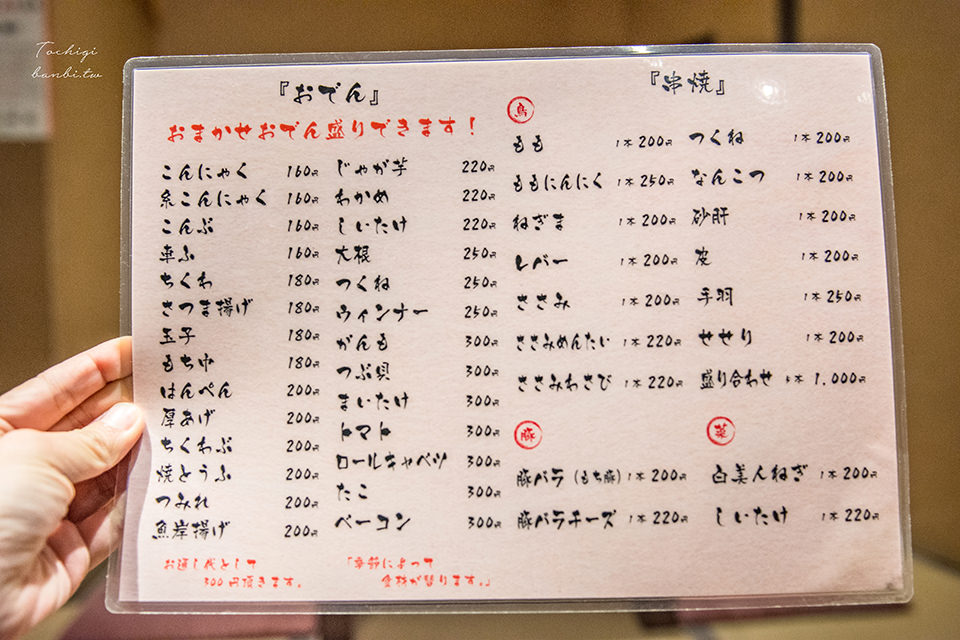 Tochigi
banbi.tw
『おでん』
おまかせおでん盛りできます！
こんにゃく 160円
糸こんにゃく 160円
こんぶ 160円
車ふ 160円
ちくわ 180円
さつま揚げ 180円
玉子 180円
もち巾 180円
はんぺん 200円
厚あげ 200円
ちくわぶ 200円
焼とうふ 200円
つみれ 200円
魚岸揚げ 200円
じゃが芋 220円
わかめ 220円
しいたけ 220円
大根 250円
つくね 250円
ウィンナー 250円
がんも 300円
つぶ貝 300円
まいたけ 300円
トマト 300円
ロールキャベツ 300円
たこ 300円
ベーコン 300円
お通し代として
300円頂きます。
「季節によって
金額が替ります。」
『串焼』
鳥
もも 1本200円
ももにんにく 1本250円
ねぎま 1本200円
レバー 1本200円
ささみ 1本200円
ささみめんたい 1本220円
ささみわさび 1本220円
つくね 1本200円
なんこつ 1本200円
砂肝 1本200円
皮 1本200円
手羽 1本250円
せせり 1本200円
盛り合わせ 1,000円
豚
豚バラ（もち豚）1本200円
豚バラチーズ 1本220円
菜
白美人ねぎ 1本200円
しいたけ 1本220円